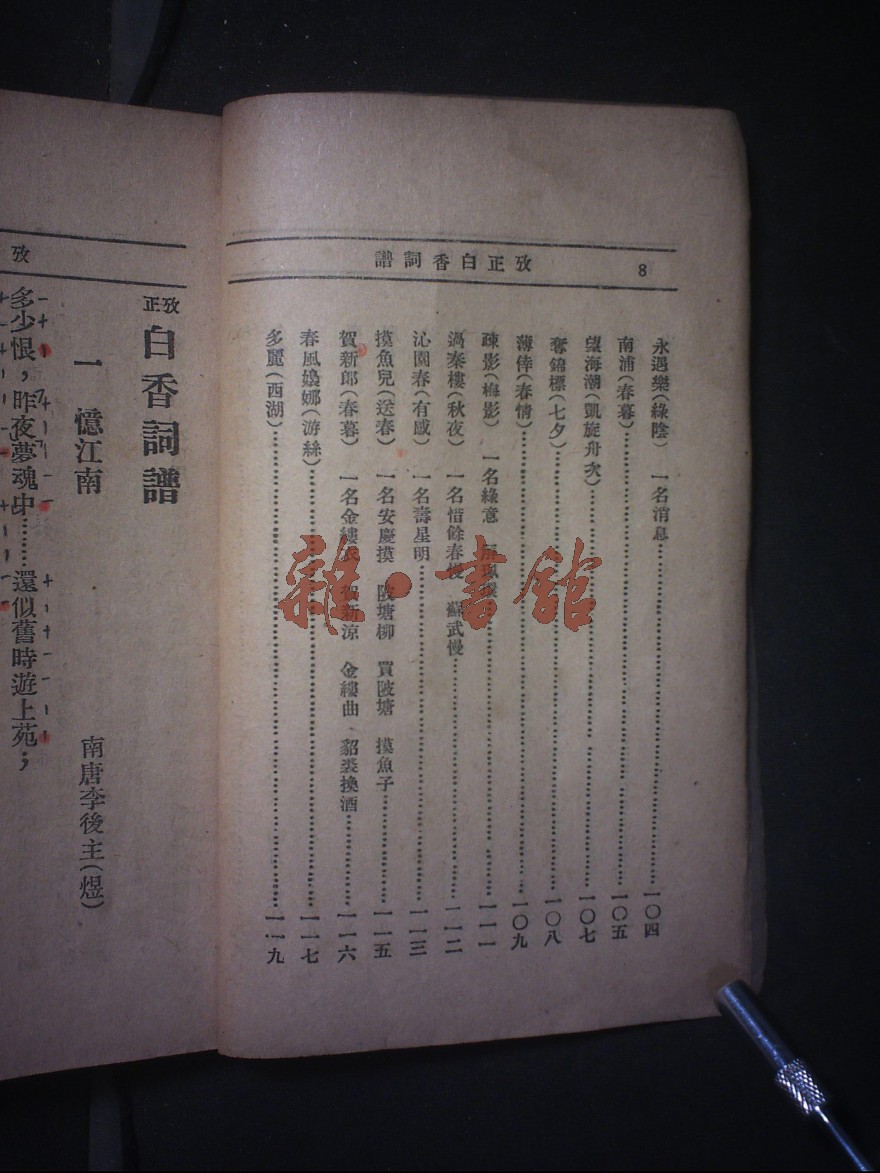 8 攷正白香詞譜
永遇樂(綠陰) 一名消息……一〇四
南浦(春暮)……一〇五
望海潮(凱旋舟次)……一〇七
奪錦標(七夕)……一〇八
薄倖(春情)……一〇九
疎影(梅影) 一名綠意……一一一
過秦樓(秋夜) 一名惜餘春慢 蘇武慢……一一二
沁園春(有感) 一名壽星明……一一三
摸魚兒(送春) 一名安慶摸 陂塘柳 買陂塘 摸魚子……一一五
賀新郎(春暮) 一名金縷衣 賀新涼 金縷曲 貂裘換酒……一一六
春風嬝娜(游絲)……一一七
多麗(西湖)……一一九
攷正白香詞譜
一 憶江南
南唐李後主(煜)
多少恨,昨夜夢魂中……還似舊時遊上苑;
攷
雜·書館